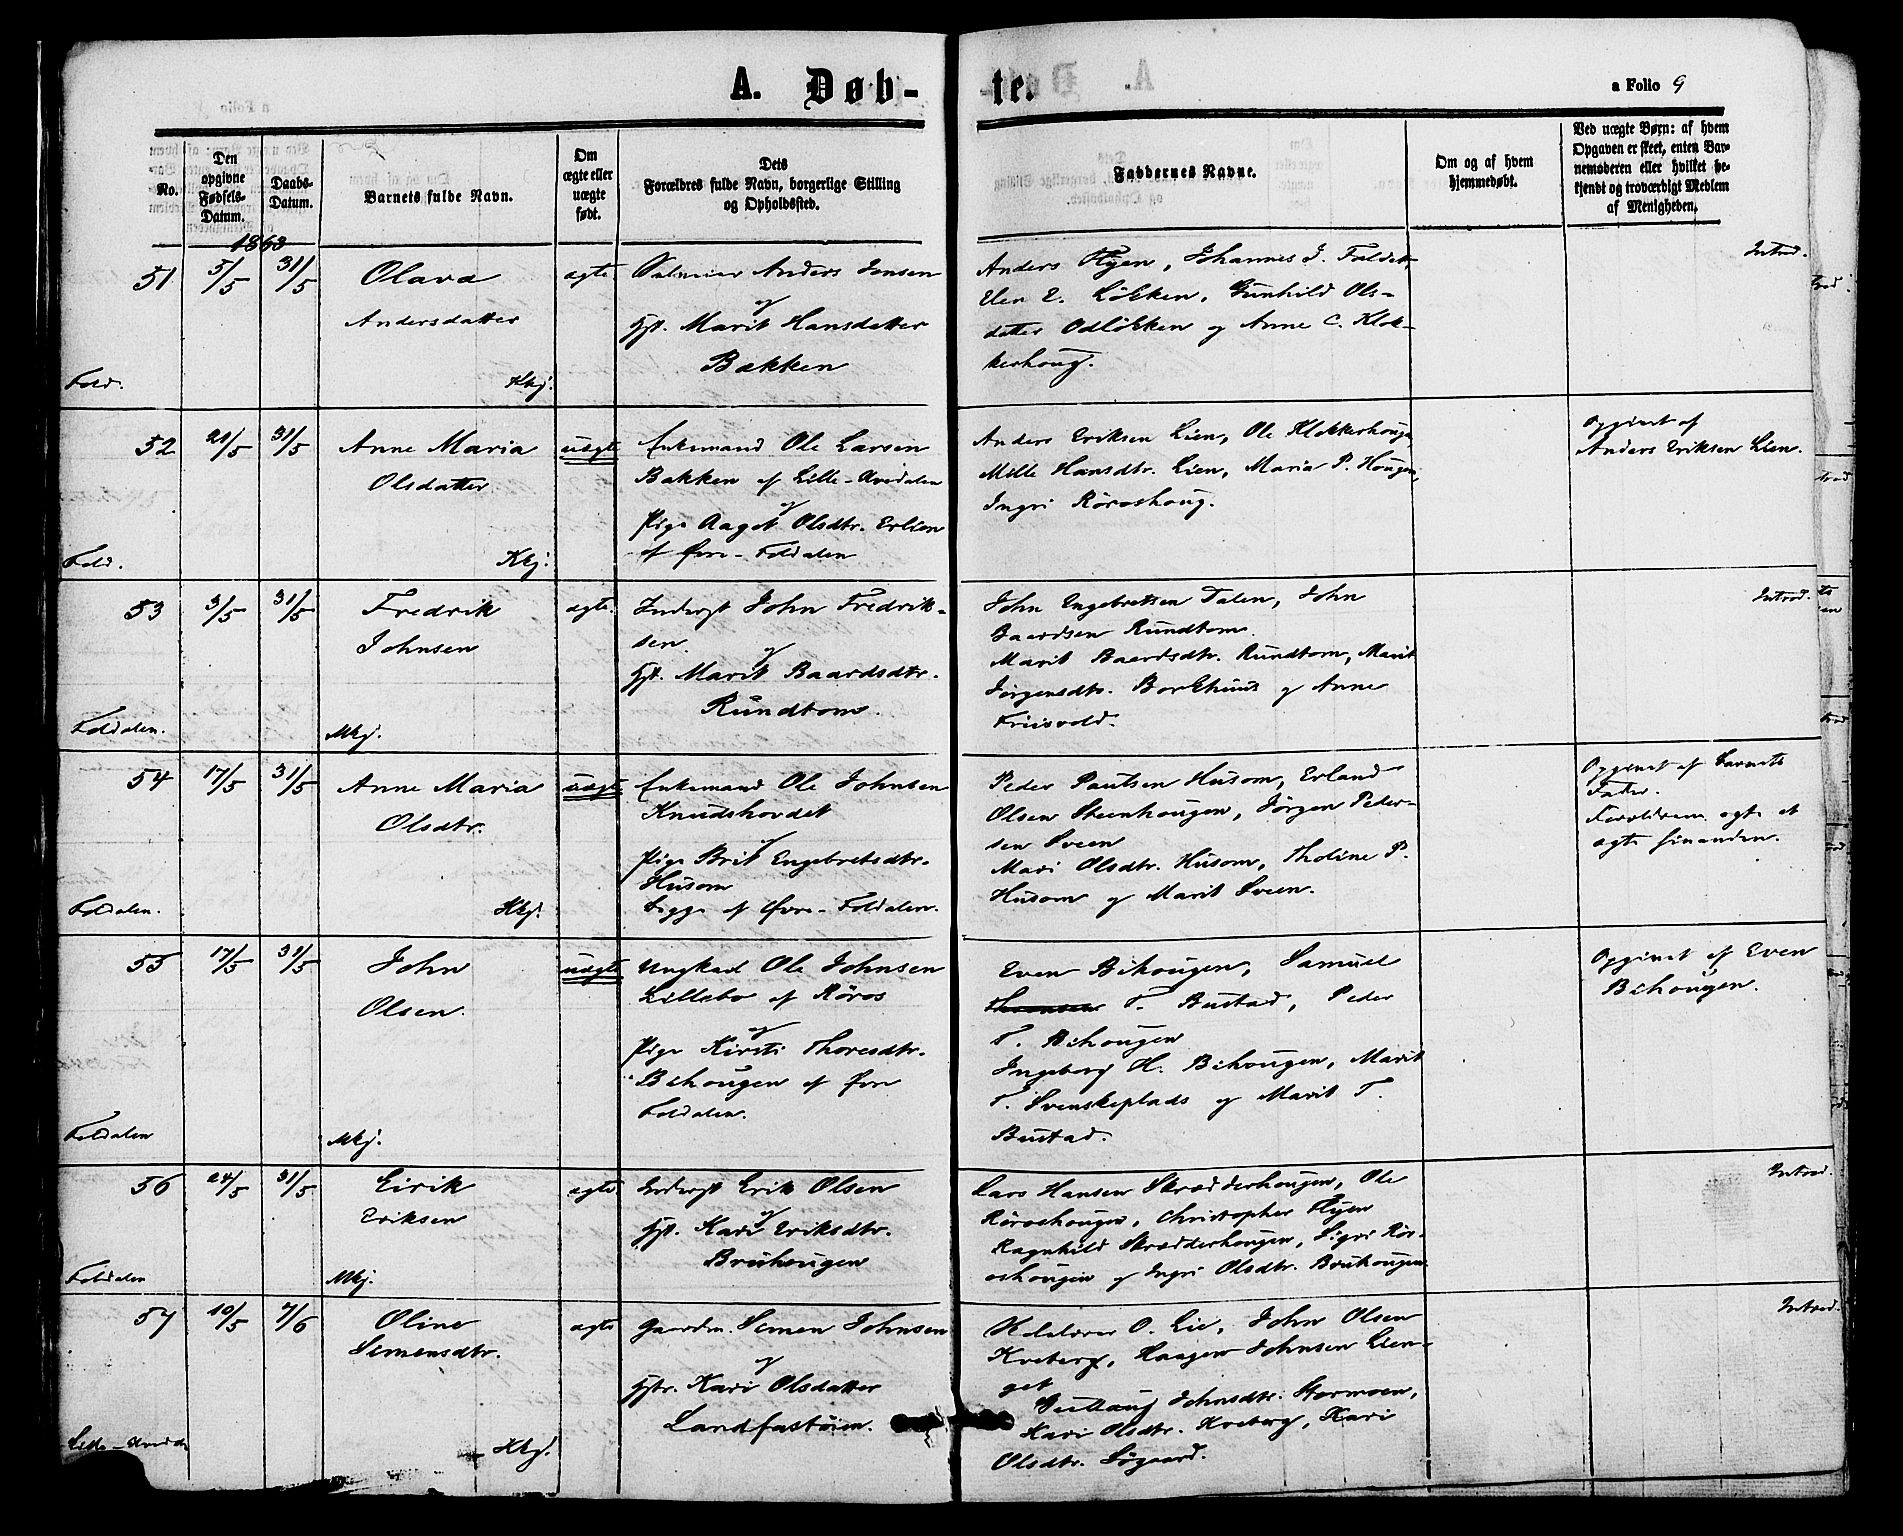 A. Døb-
te.
a Folio 9
No.
Den
opgivne
Fødsels-
Datum.
Daabs-
Datum.
Barnets fulde Navn.
Om
ægte eller
uægte
født.
Dets
Forældres fulde Navn, borgerlige Stilling
og Opholdssted.
Faddernes Navne.
Om og af hvem
hjemmedøbt.
Ved uægte Børn: af hvem
Opgaven er skeet, enten Bar-
nemoderen eller hvilket be-
kjendt og troværdigt Medlem
af Menigheden.
1863
51
5/5
31/5
Olava
Andersdatter
Kkj.
Fold.
ægte
Anders Jonsen
og
Hst. Marit Hansdatter
Bakken
Anders Ryen, Johannes J. Faldet,
Elen E. Løkken, Gunhild Ols-
datter Odløkken og Anne C. Klok-
kerhoug.
Introd.
52
21/5
31/5
Anne Maria
Olsdatter
Kkj.
Fold.
uægte
Enkemand Ole Larsen
Bakken af Lille-Avedalen
og
Pige Aaget Olsdtr. Erlien
af Øvre-Foldalen
Anders Eriksen Lien, Ole Klokkerhoug
Mille Hansdtr. Lien, Maria P. Hougen,
Ingri Röroshoug.
Opgivet af
Anders Eriksen Lien.
53
3/5
31/5
Fredrik
Johnsen
Mkj.
Foldalen.
ægte
Inderst John Fredrik-
sen
og
Hst. Marit Baardsdtr.
Rundtom.
John Engebretsen Dalen, John
Baardsen Rundtom
Marit Baardsdtr. Rundtom, Marit
Jørgensdtr. Borkhuus og Anne
Friisvold.
Introd.
54
17/5
31/5
Anne Maria
Olsdtr.
Kkj.
Foldalen.
uægte
Enkemand Ole Johnsen
Knudshovdet
og
Pige Brit Engebretsdtr.
Husom
Begge af Øvre-Foldalen.
Peder Paulsen Husom, Erland
Olsen Steenhougen, Jørgen Peder-
sen Sveen
Mari Olsdtr. Husom, Tholine P.
Husom og Marit Sveen.
Opgivet af Barnets
Fader.
Forældrene agte at
ægte hinanden.
55
17/5
31/5
John
Olsen.
Mkj.
Foldalen
uægte
Ungkarl Ole Johnsen
Lillebo af Röros
og
Pige Kirsti Thoresdtr.
Bihougen af Øvre
Foldalen.
Even Bihougen, Samuel
T. Bustad, Peder
T. Bihougen
Ingeborg H. Bihougen, Marit
T. Svenskeplads og Marit T.
Bustad.
Opgivet af Even
Bihougen.
56
24/5
31/5
Eirik
Eriksen
Mkj.
Foldalen
ægte
Inderst Erik Olsen
og
Hst. Kari Eriksdtr.
Bruhougen
Lars Hansen Skrædderhougen, Ole
Röroshougen, Christopher Ryen
Ragnhild Skrædderhougen, Sigri Rör-
oshougen og Ingri Olsdtr. Bruhougen
Introd.
57
10/5
7/6
Oline
Simensdtr.
Kkj.
ægte
Gaardm. Simen Johnsen
og
Hstr. Kari Olsdatter
Landfastøien.
O. Lie, John Olsen
Kveberg, Haagen Johnsen Lien-
get
Johnsdtr. Stormoen,
Kari Olsdtr. Kveberg, Kari
Olsdtr. Søgaard.
Introd.